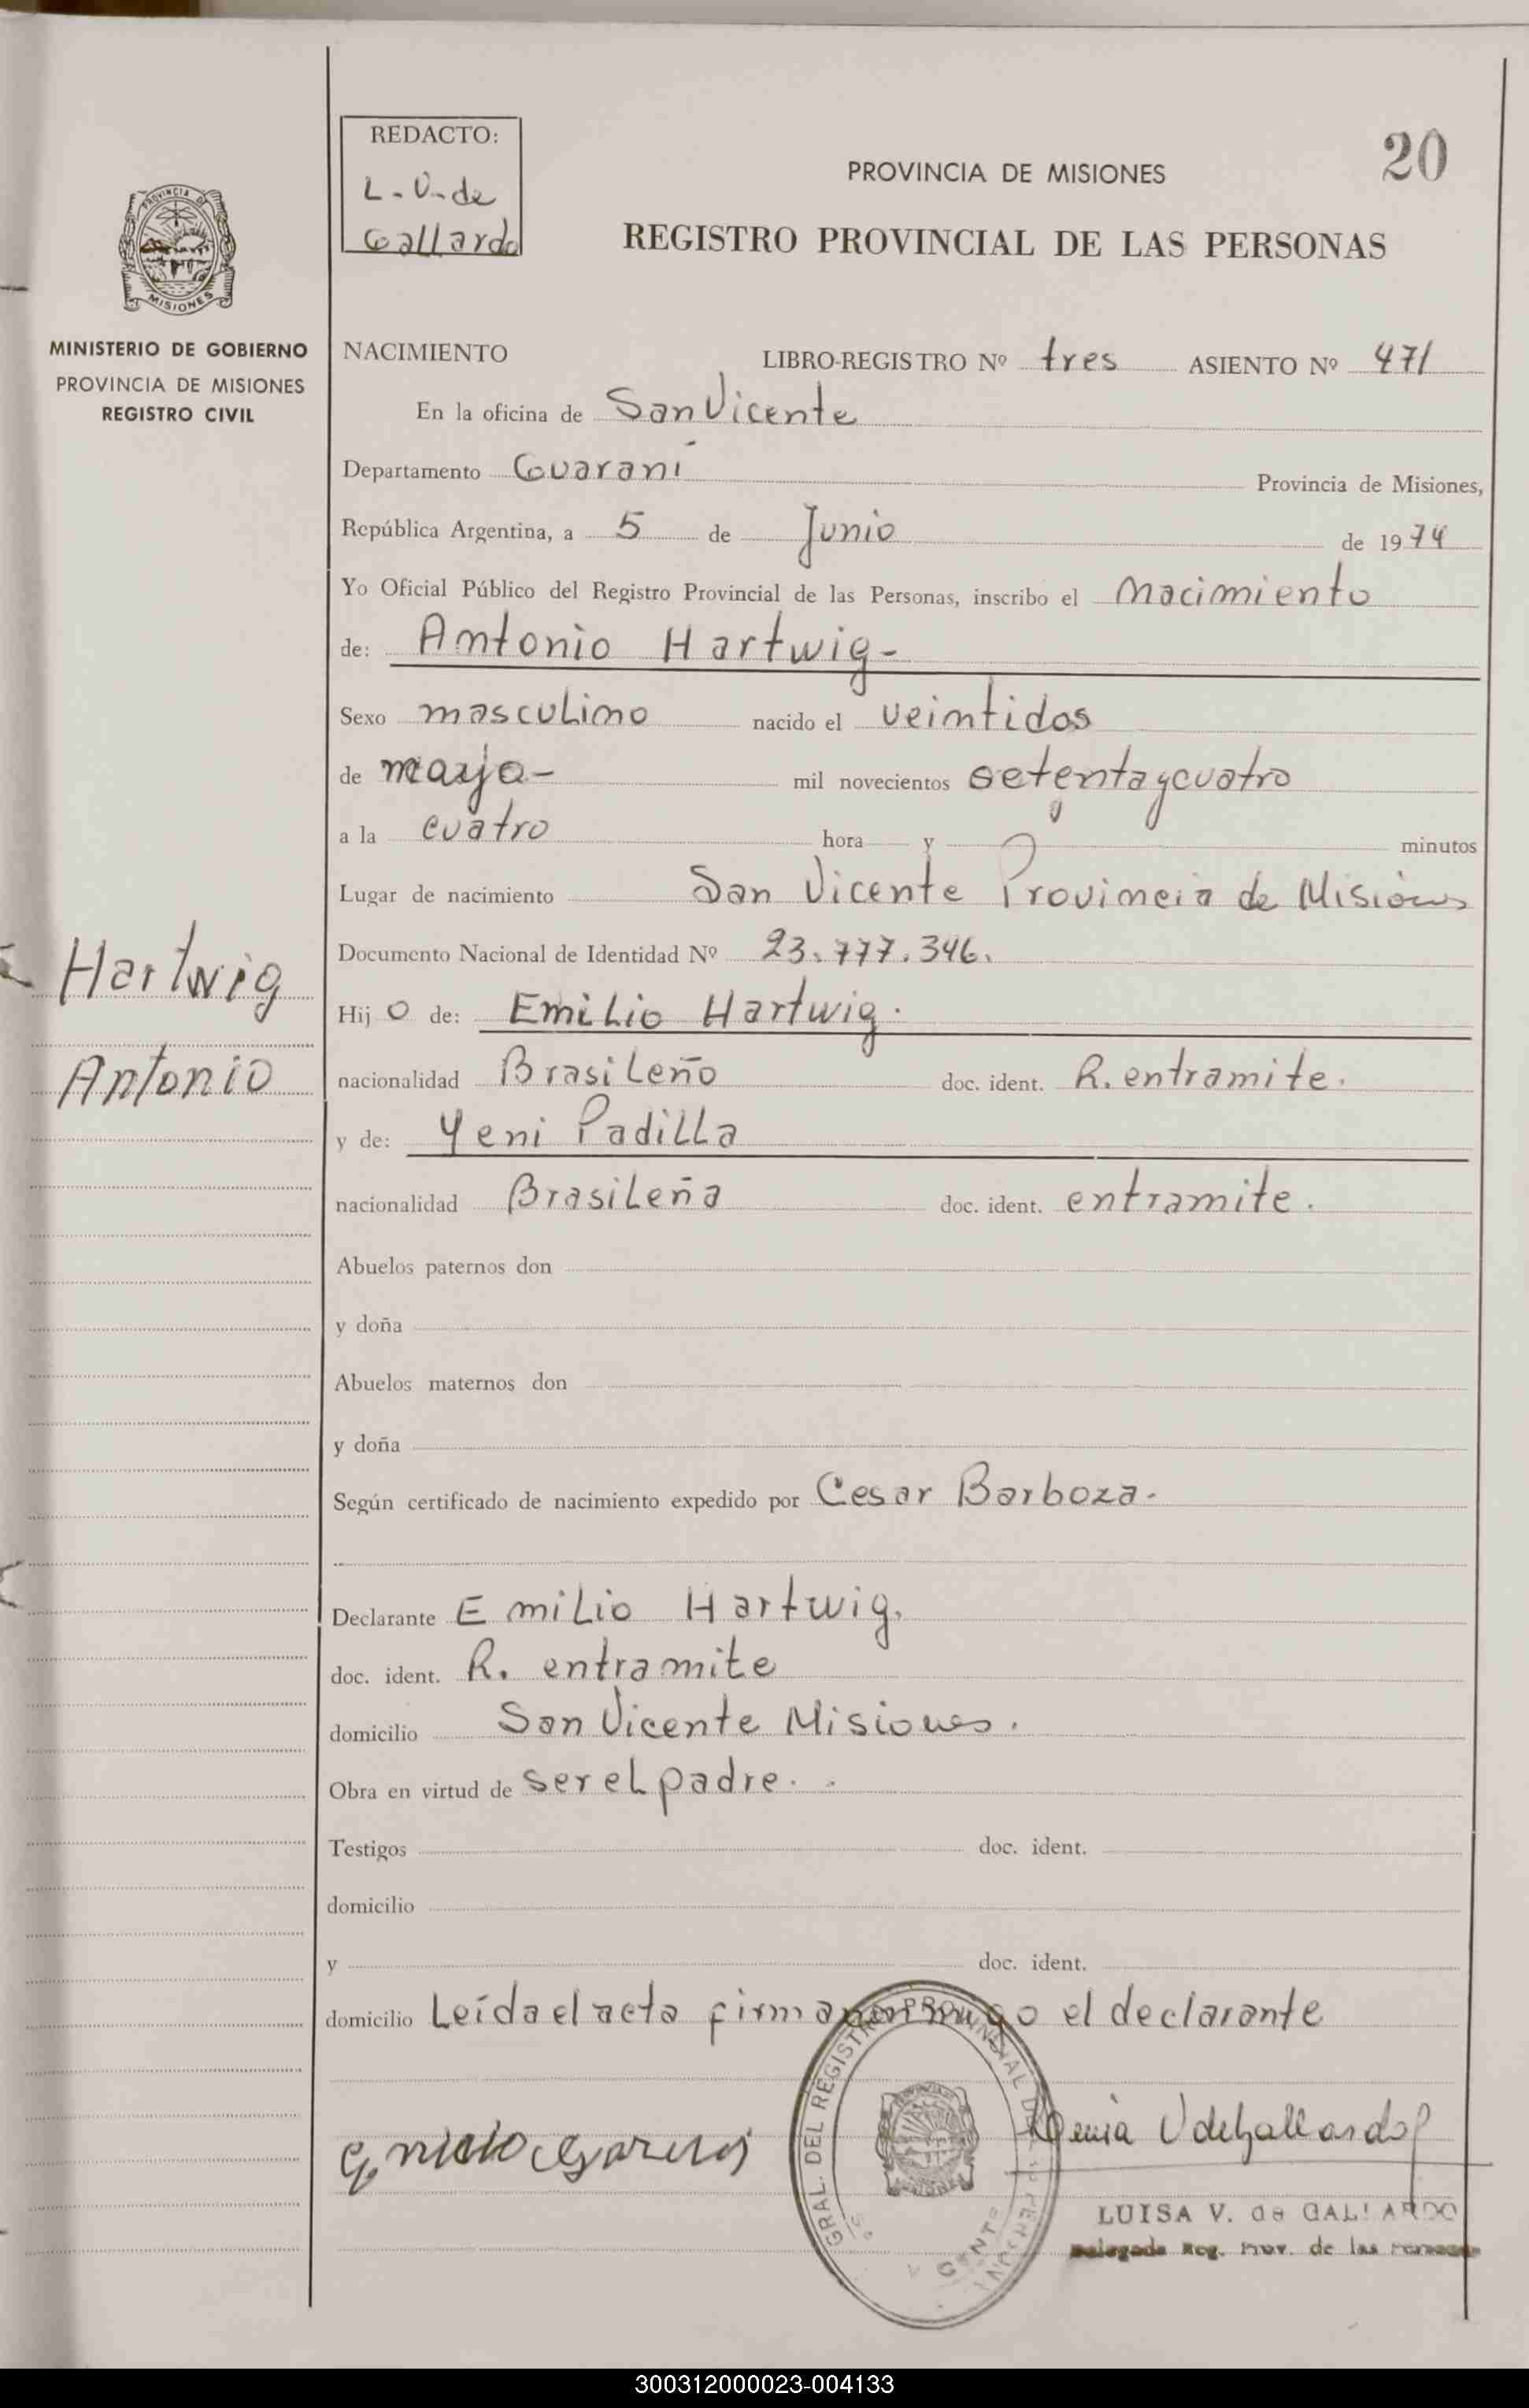 REDACTO:
L-V-de
Gallardo
PROVINCIA DE MISIONES
20
REGISTRO PROVINCIAL DE LAS PERSONAS
PROVINCIA DE
MISIONES
MINISTERIO DE GOBIERNO
PROVINCIA DE MISIONES
REGISTRO CIVIL
NACIMIENTO LIBRO-REGISTRO Nº tres ASIENTO Nº 471
En la oficina de San Vicente
Departamento Guarani Provincia de Misiones,
República Argentina, a 5 de Junio de 1974
Yo Oficial Público del Registro Provincial de las Personas, inscribo el Nacimiento
de: Antonio Hartwig-
Sexo masculino nacido el veintidos
de mayo- mil novecientos setenta y cuatro
a la cuatro hora y minutos
Lugar de nacimiento San Vicente Provincia de Misiones
Documento Nacional de Identidad Nº 23.777.346.
Hartwig
Hijo de: Emilio Hartwig.
Antonio
nacionalidad Brasileño doc. ident. R. entramite.
y de: Yeni Padilla
nacionalidad Brasileña doc. ident. entramite.
Abuelos paternos don
y doña
Abuelos maternos don
y doña
Según certificado de nacimiento expedido por Cesar Barboza.
Declarante Emilio Hartwig.
doc. ident. R. entramite
domicilio San Vicente Misiones.
Obra en virtud de ser el padre.
Testigos doc. ident.
domicilio
y doc. ident.
domicilio Leída el acta firma conmigo el declarante
GRAL. DEL REGISTRO PROVINCIAL DE
V de Gallardo
LUISA V. de GALLARDO
Delegada Reg. Prov. de las Personas
300312000023-004133